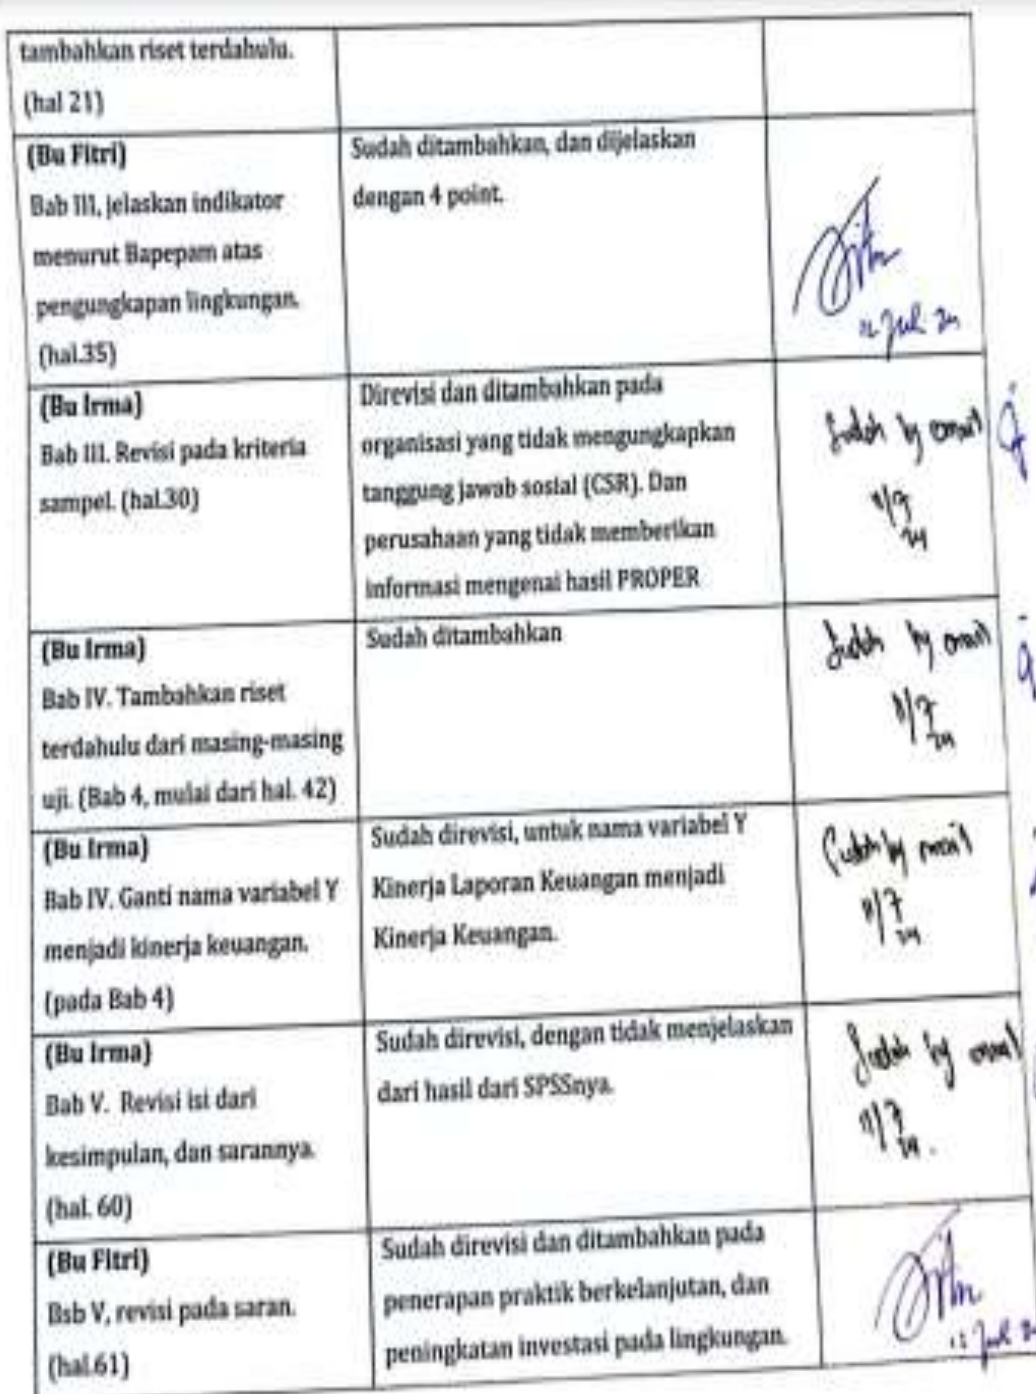 tambahkan riset terdahulu.
(hal 21)
(Bu Fitri)
Bab III, jelaskan indikator
menurut Bapepam atas
pengungkapan lingkungan.
(hal.35)
Sudah ditambahkan, dan dijelaskan
dengan 4 point.
Juli 24
(Bu Irma)
Bab III. Revisi pada kriteria
sampel. (hal.30)
Direvisi dan ditambahkan pada
organisasi yang tidak mengungkapkan
tanggung jawab sosial (CSR). Dan
perusahaan yang tidak memberikan
informasi mengenai hasil PROPER
Sudah by email
(Bu Irma)
Bab IV. Tambahkan riset
terdahulu dari masing-masing
uji. (Bab 4, mulai dari hal. 42)
Sudah ditambahkan
Sudah by email
11/7
24
(Bu Irma)
Bab IV. Ganti nama variabel Y
menjadi kinerja keuangan.
(pada Bab 4)
Sudah direvisi, untuk nama variabel Y
Kinerja Laporan Keuangan menjadi
Kinerja Keuangan.
Sudah by email
11/7
24
(Bu Irma)
Bab V. Revisi isi dari
kesimpulan, dan sarannya.
(hal. 60)
Sudah direvisi, dengan tidak menjelaskan
dari hasil dari SPSSnya.
Sudah by email
11/7
24.
(Bu Fitri)
Bsb V, revisi pada saran.
(hal.61)
Sudah direvisi dan ditambahkan pada
penerapan praktik berkelanjutan, dan
peningkatan investasi pada lingkungan.
Juli